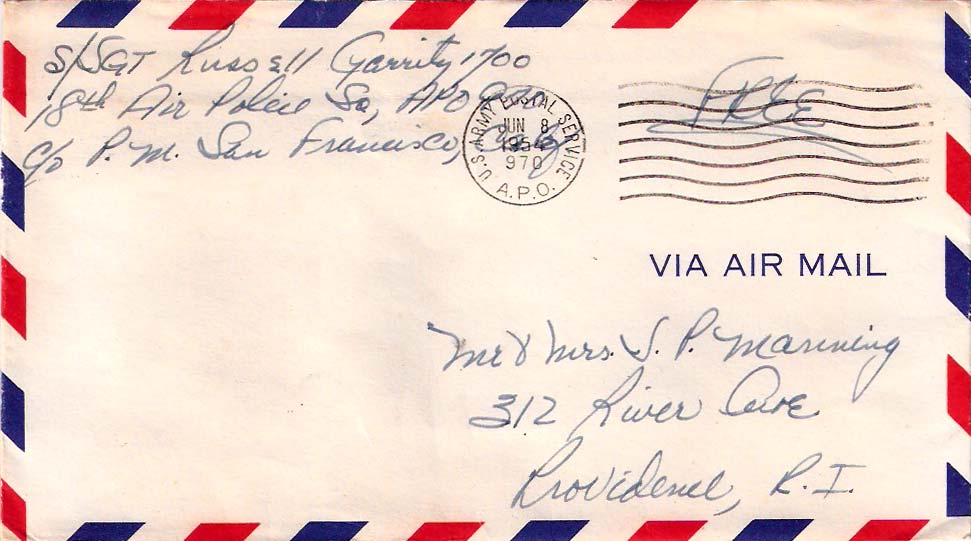 S/SGT Russell Garrity 1700
18th Air Police Sq, APO 970
c/o P. M. San Francisco, Calif
U.S. ARMY POSTAL SERVICE
JUN 8
1954
970
A.P.O.
FREE
VIA AIR MAIL
Mr & Mrs. J. P. Manning
312 River Ave
Providence, R. I.